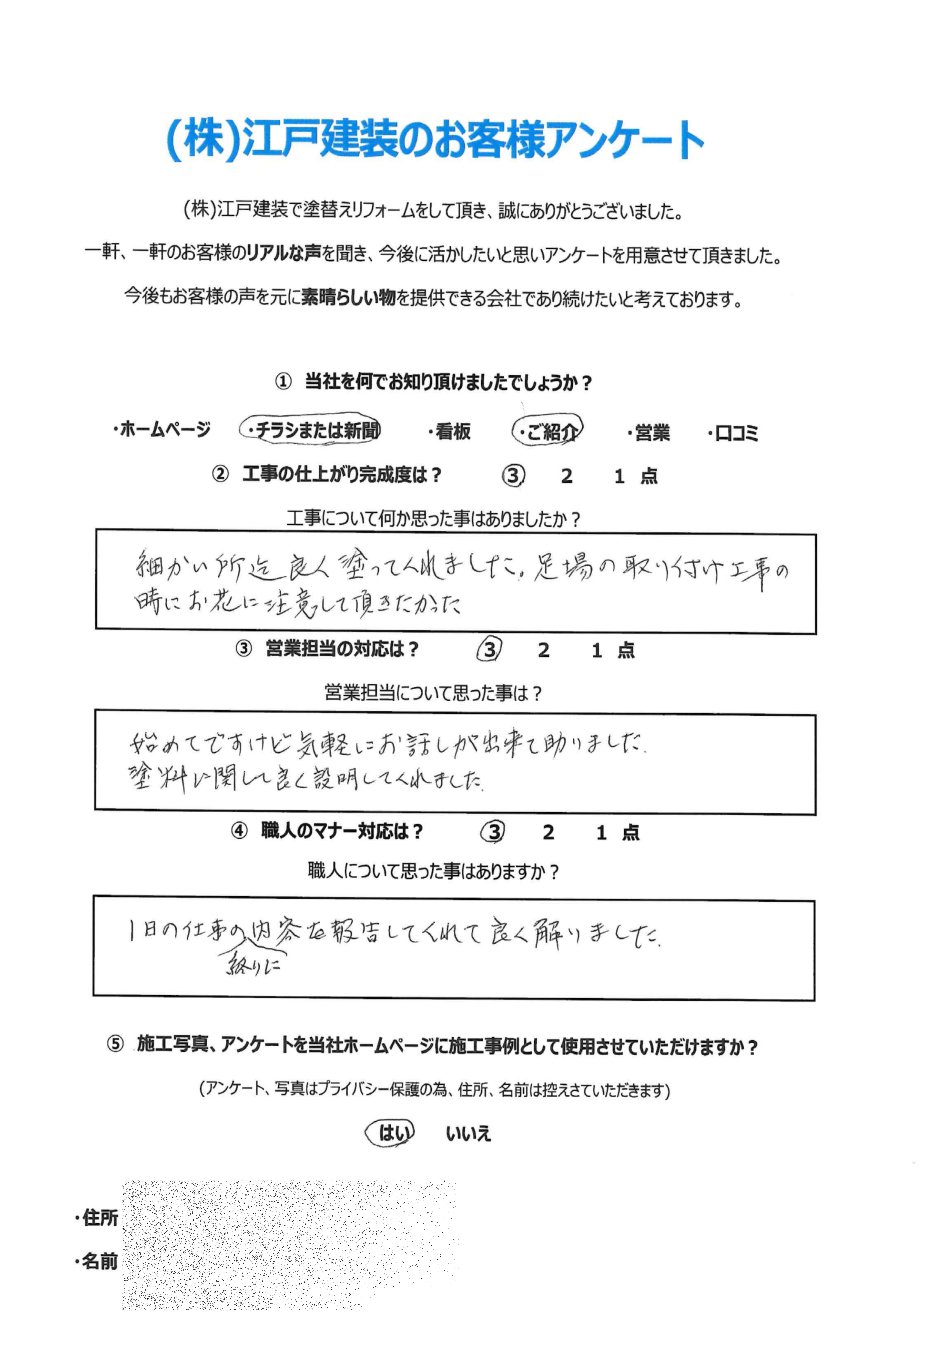 (株)江戸建装のお客様アンケート
(株)江戸建装で塗替えリフォームをして頂き、誠にありがとうございました。
一軒、一軒のお客様のリアルな声を聞き、今後に活かしたいと思いアンケートを用意させて頂きました。
今後もお客様の声を元に素晴らしい物を提供できる会社であり続けたいと考えております。
① 当社を何でお知り頂けましたでしょうか？
・ホームページ ・チラシまたは新聞 ・看板 ・ご紹介 ・営業 ・口コミ
② 工事の仕上がり完成度は？ 3 2 1 点
工事について何か思った事はありましたか？
細かい所迄良く塗ってくれました。足場の取り付け工事の
時にお花に注意して頂きたかった
③ 営業担当の対応は？ 3 2 1 点
営業担当について思った事は？
始めてですけど気軽にお話しが出来て助りました。
塗料に関して良く説明してくれました。
④ 職人のマナー対応は？ 3 2 1 点
職人について思った事はありますか？
1日の仕事の内容を報告してくれて良く解りました。
終りに
⑤ 施工写真、アンケートを当社ホームページに施工事例として使用させていただけますか？
(アンケート、写真はプライバシー保護の為、住所、名前は控えさていただきます)
はい いいえ
・住所
・名前